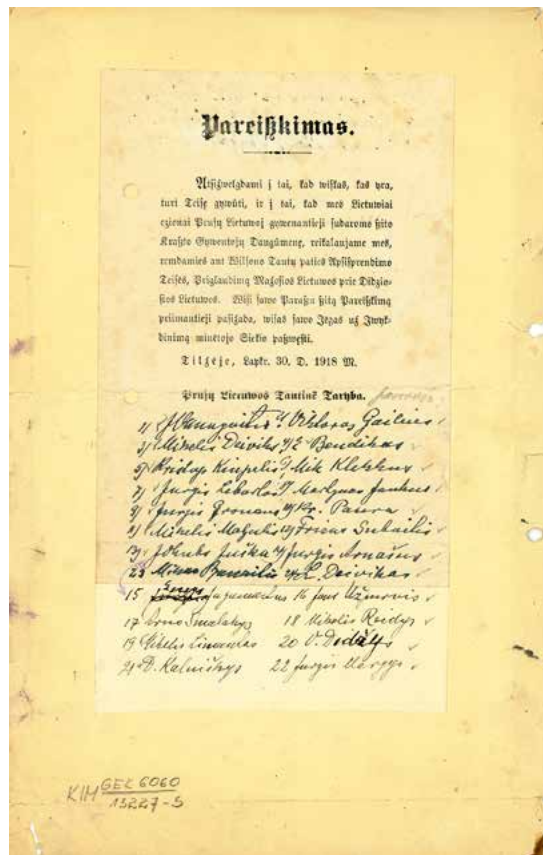 Pareiſzkimas.
Atſižwelgdami į tai, kad wiſkas, kas yra,
turi Teiſę gywūti, ir į tai, kad mes Lietuwiai
ezienai Pruſų Lietuwoj gywenantieji ſudarome ſzito
Kraſzto Gywentojų Daugūmenę, reikalaujame mes,
remdamies ant Wilſono Tautų paties Apſiſprendimo
Teiſės, Priglaudimą Mažoſios Lietuwos prie Didžio-
ſios Lietuwos. Wiſi ſawo Paraſzu ſzitą Pareiſzkimą
priimantieji paſižada, wiſas ſawo Jėgas už Įwyk-
dinimą minėtojo Siekio paſzwęſti.
Tilžėje, Lapkr. 30. D. 1918 M.
Pruſų Lietuwos Tautinė Taryba.
1) 2) Viktoras Gailius
3) Mikelis Deivikis 4) E Bendikas
5) Kristups Kiupelis 6) Mik Klečkus
7) Jurgis Lebartas 8) Martynas Jankus
9) Jurgis Gronaus 10) Kr. Paura
11) Mikelis Mažulis 12) Fricas Subaitis
13) Juška 14) Jurgis Arnašius
23 Banszilis 24) L. Deivikas
15 16 Jons Užmovis
17 Smalakys 18 Mikelis Reidys
19 Mikelis Limantas 20 V. Didžys
21 D. Kalniškys 22 Jurgis Margys
KIM GEK 6060
13227-5